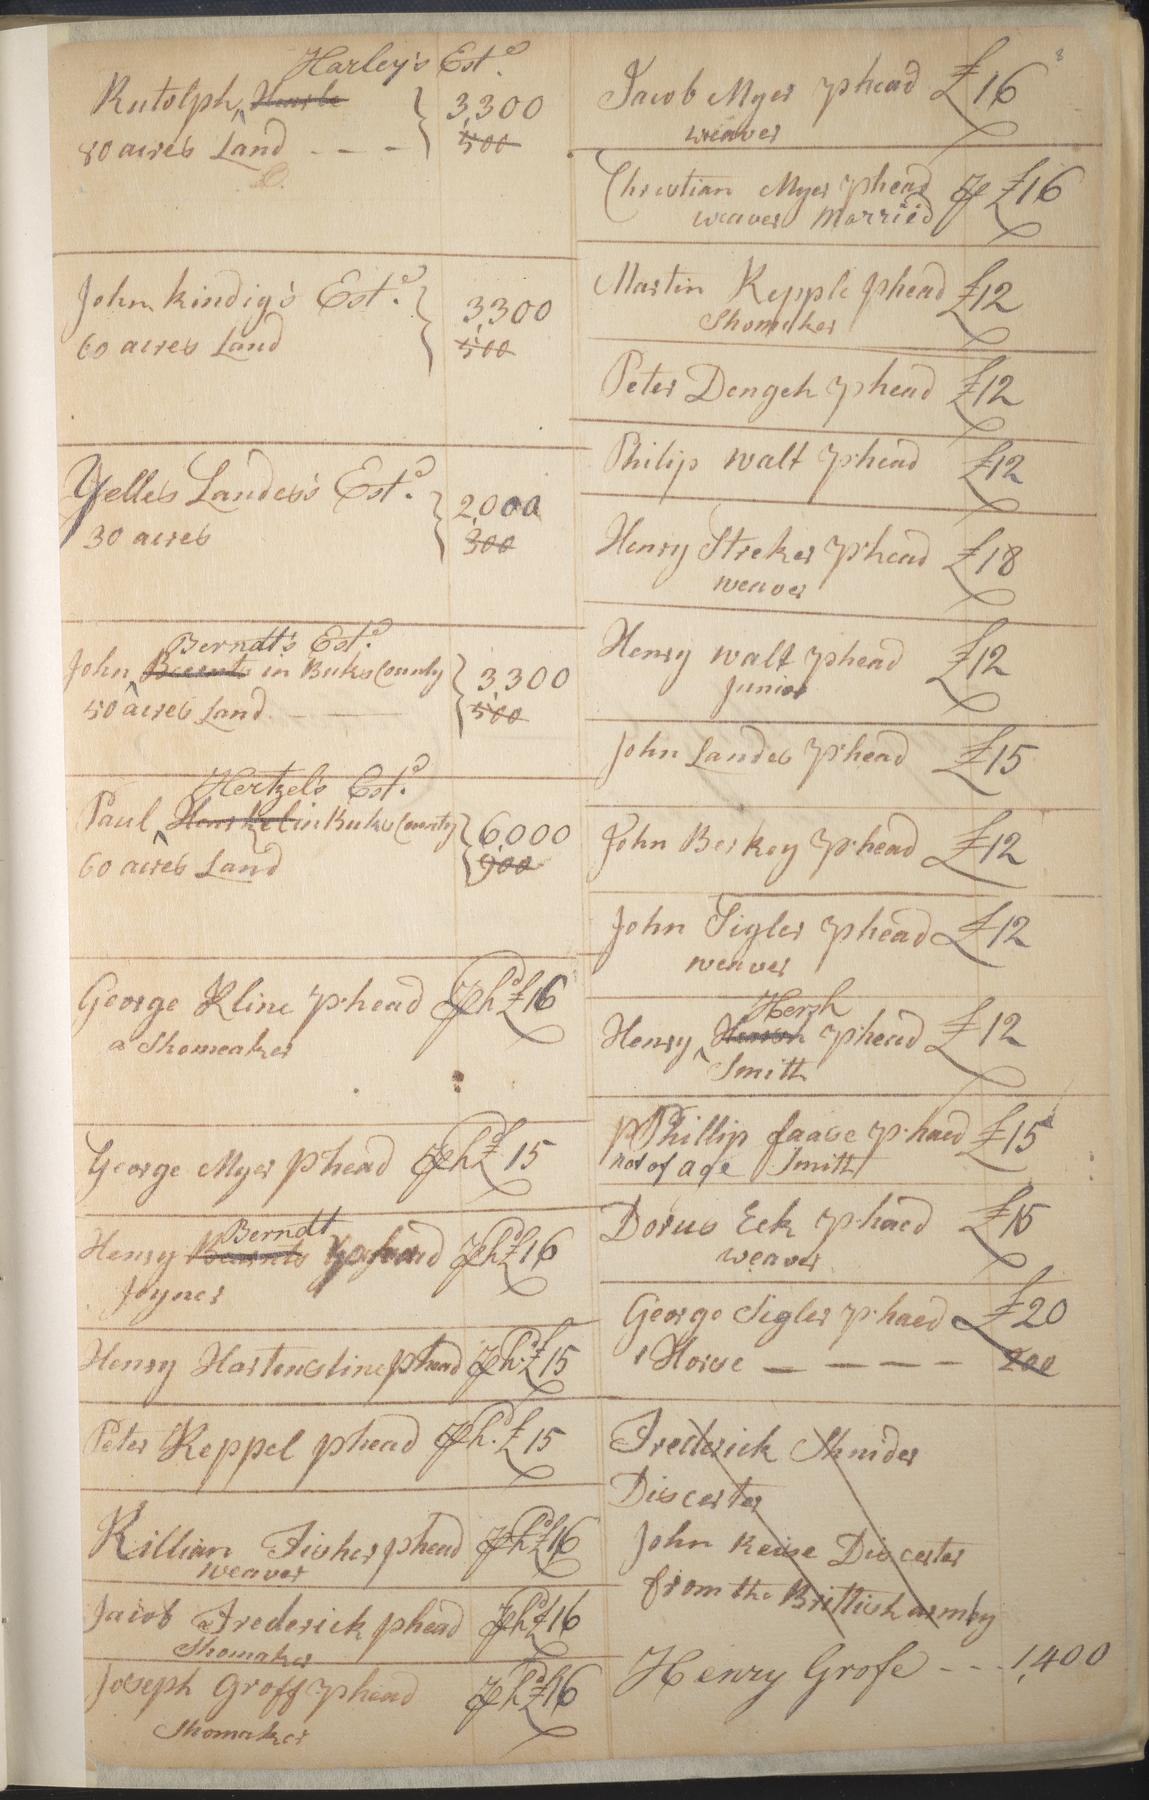 Harley's Est.e
Rutolph ^ Hearle } 3,300
80 acres Land - - - 500
John kindig's Est.e } 3,300
60 acres Land 500
Yelles Landes's Est.e } 2,000
30 acres 300
Berndt's Est.e
John ^ Bearnts in Buks County } 3,300
50 acres Land 500
Hertzel's Est.e
Paul ^ in Buks County } 6,000
60 acres Land 900
George Kline phead £16
a Shomeaker
George Myer phead £15
Berndt
Henry Bearnts phead £16
Joyner
Henry Hartensline phead £15
Peter Keppel phead £15
Killian Fisher phead £16
weaver
Jacob Frederick phead £16
Shomaker
Joseph Groff phead £16
Shomaker
Jacob Myer phead £16
weaver
Christian Myer phead £16
weaver Married
Martin Kepple phead £12
Shomaker
Peter Dengeh phead £12
Philip walt phead £12
Henry Streker phead £18
weaver
Henry walt phead £12
junior
John Landes phead £15
John Berkey phead £12
John Sigler phead £12
weaver
Hersh
Henry ^ phead £12
Smith
Phillip faase phaed £15
not of age Smith
Dorus Eck phaed £15
weaver
George Sigler phaed £20
1 Horse - - - - 200
Frederick Shnider
Discerter
John Keise Discerter
from the Brittish armby
Henry Grofe - - - 1,400